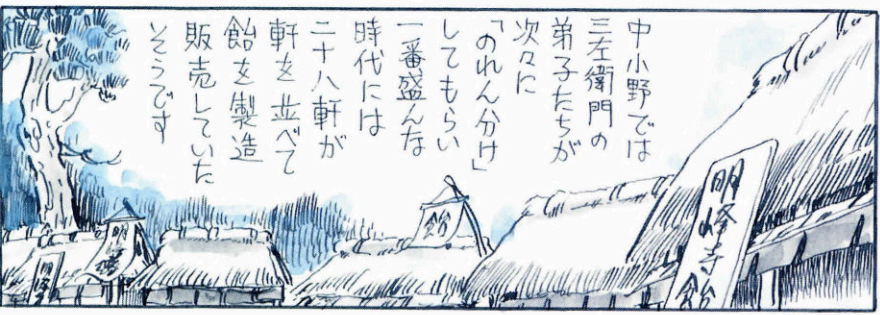 中小野では
三左衛門の
弟子たちが
次々に
「のれん分け」
してもらい
一番盛んな
時代には
二十八軒が
軒を並べて
飴を製造
販売していた
そうです
明峰寺飴
飴